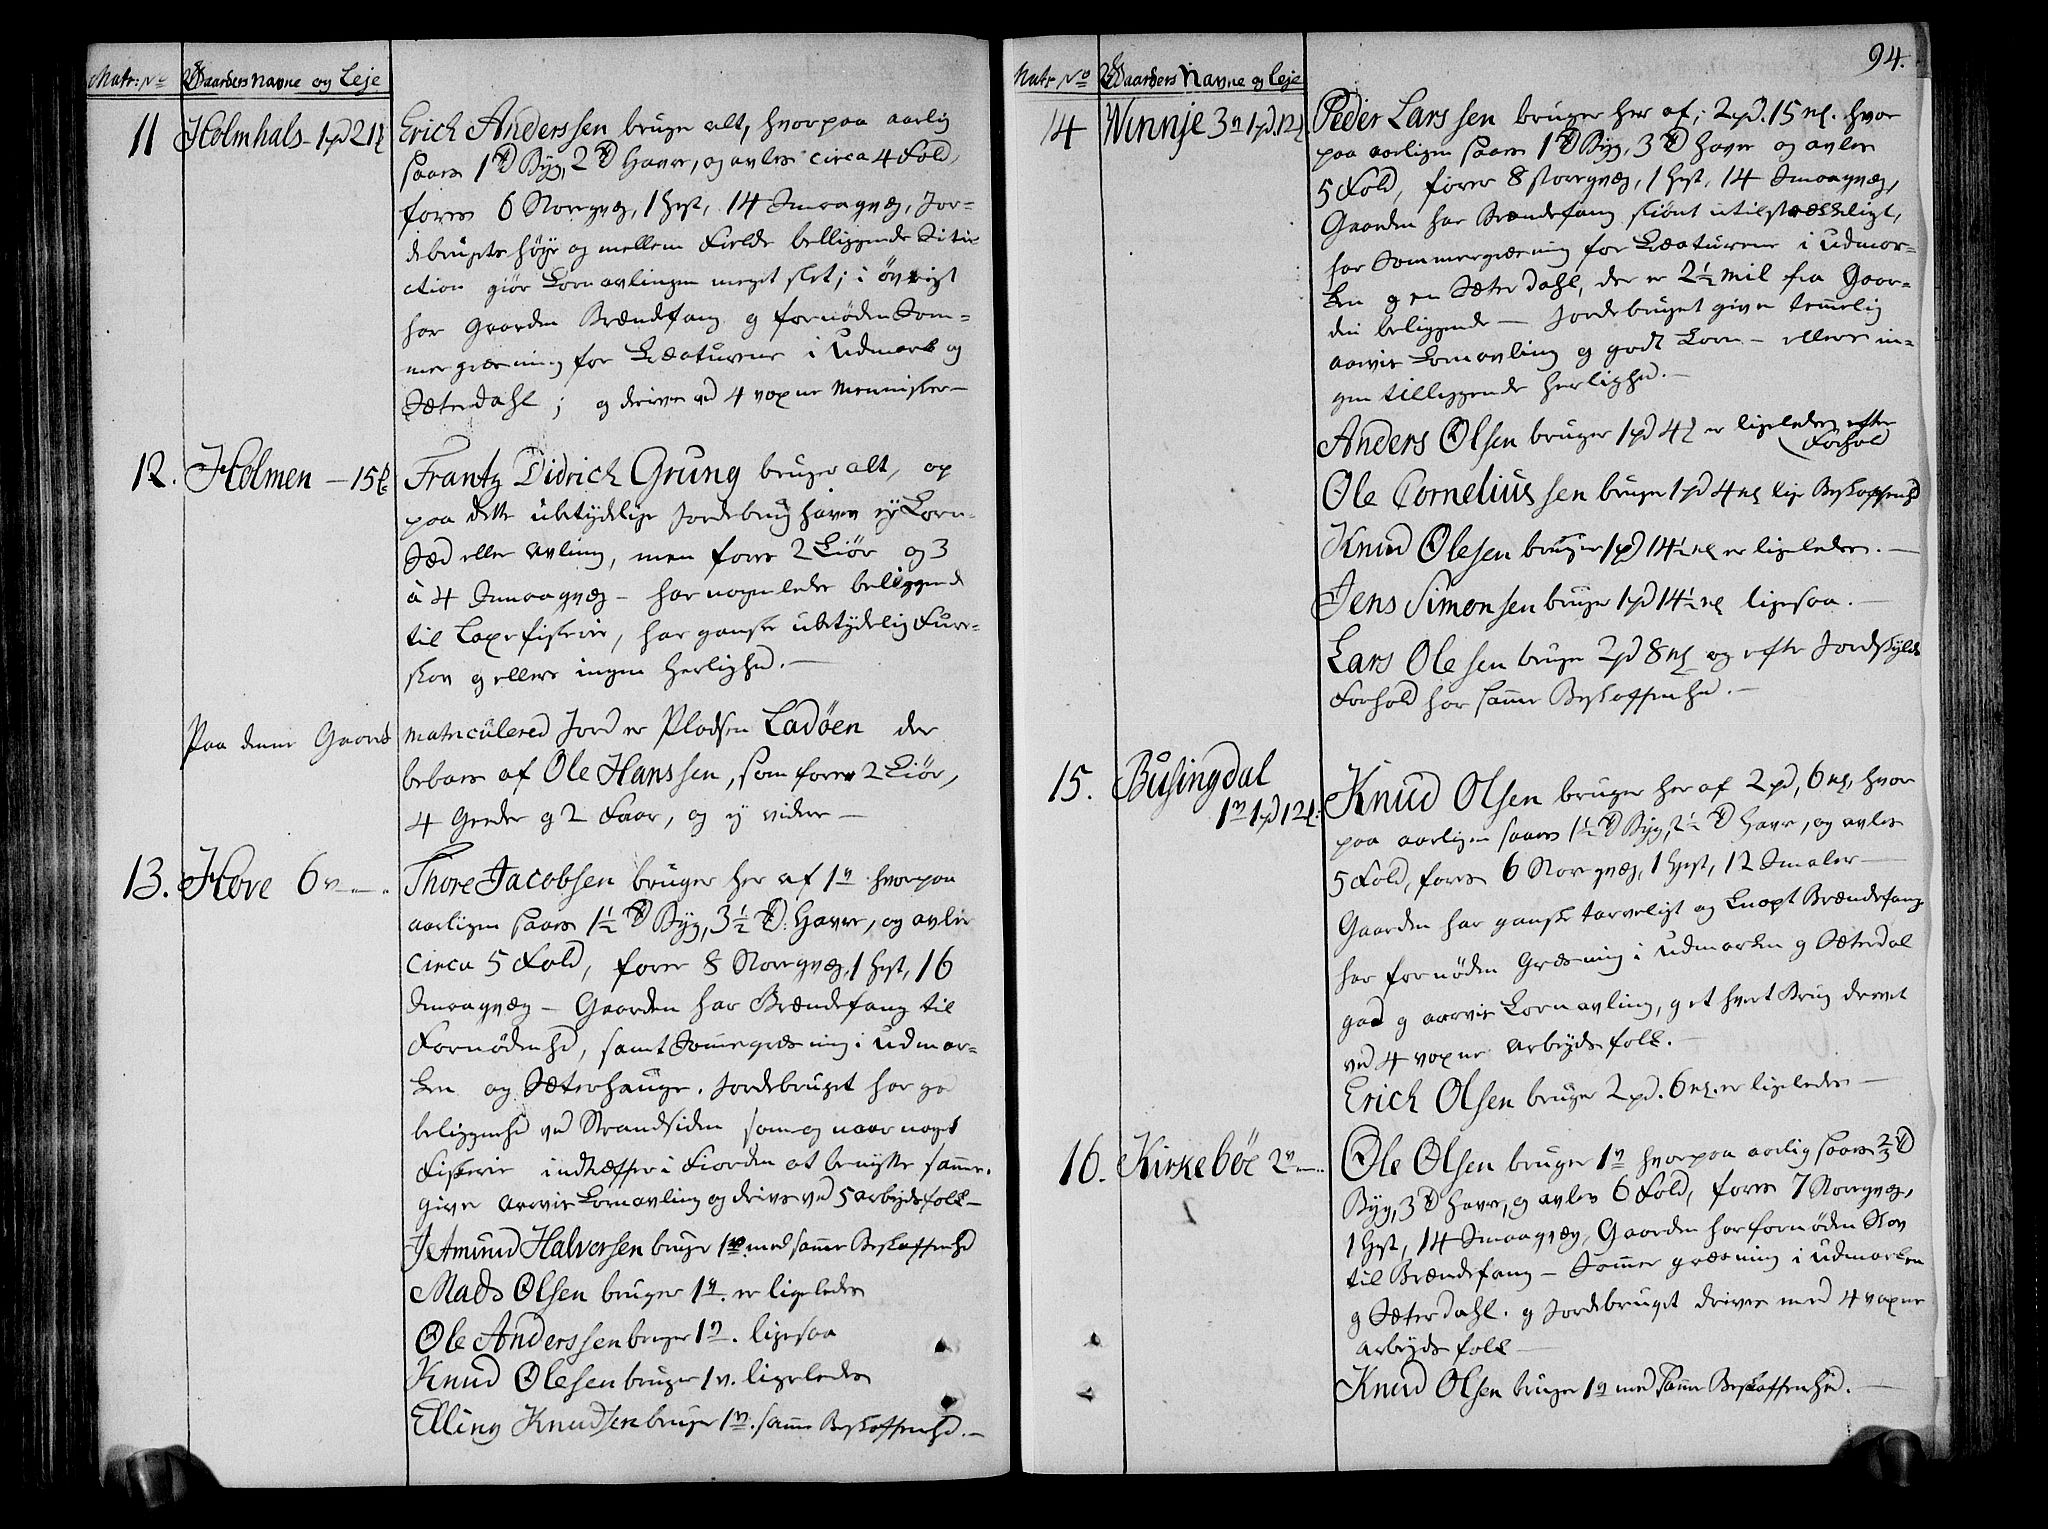 Matr: No Gaardens Navne og Leje
11 Holmhals - 1pd 21 Erich Anderssen bruger alt, hvorpaa aarlig
saaes 1 Td Byg, 2 Td Havre, og avles circa 4 Fold,
fores 6 Storqvæg, 1 Hest, 14 Smaaqvæg, Jor-
debrugets høye og mellem Fielde beliggende Situ-
ation giør Kornavlingen meget slet; i øvrigt
har Gaarden Brændefang og fornøden Som-
mergræsning for Kreaturene i Udmark og
Sæterdahl; og drives ved 4 voxne Mennisker -
12. Holmen - 15 Frantz Didrich Grung bruger alt, og
paa dette ubetydelige Jordebrug haves ey Korn-
Sæd eller Avling, men fores 2 Kiør og 3
à 4 Smaaqvæg - har nogenledes beliggende
til Laxefiskerie, har ganske ubetydelig Furre-
skov og ellers ingen Herlighed. -
Paa denne Gaards matriculered Jord er Pladsen Ladøen der
beboes af Ole Hanssen, som forer 2 Kiør,
4 Geeder og 2 Faar, og ey videre -
13. Hove 6 v. Thore Jacobsen bruger her af 1 v hvorpaa
aarligen saaes 1½ Td Byg, 3½ Td. Havre, og avler
circa 5 Fold, forer 8 Storqvæg, 1 Hest, 16
Smaaqvæg - Gaarden har Brændefang til
Fornødenhed, samt Sommergræsning i Udmar-
ken og Sæterhauge. Jordebruget har god
beliggenhed ved Strandsiden som og naar noget
Fiskerie indtræffer i Fiorden at benytte samme.
giver aarvis Kornavling og drives ved 5 arbeydsfolk -
Amund Halversen bruger 1 v. med samme Beskaffenhed
Mads Olsen bruger 1 v. er ligeledes
Ole Anderssen bruger 1 v. ligesaa
Knud Olesen bruger 1 v. ligeledes
Elling Knudsen bruger 1 v. samme Beskaffenhed. -
94.
Matr No Gaardens Navne og Leje
14 Winnje 3 v 1 pd. 12 Peder Larssen bruger her af; 2 pd. 15 mk. hvor
paa aarligen saaes 1 Td Byg, 3 Td Havre og avles
5 Fold, forer 8 storqvæg, 1 Hest, 14 Smaaqvæg,
Gaarden har Brændefang skiønt utilstrækkeligt,
har Sommergræsning for Kreaturene i Udmar-
ken og en Sæterdahl, der er 2½ mil fra Gaar-
den beliggende - Jordebruget giver temmelig
aarvis Kornavling og godt Korn - ellers in-
gen tilliggende Herlighed. -
Anders Olsen bruger 1 pd 4 er ligeledes efter
Forhold
Ole Corneliussen bruger 1 pd 4 mk lige Beskaffenhed
Knud Olesen bruger 1 pd 14½ mk er ligeledes. -
Jens Simonsen bruger 1 pd 14½ mk ligesaa. -
Lars Olesen bruger 2 pd 8 mk og efter Jordskylds
Forhold har samme Beskaffenhed. -
15. Busingdal
1 v 1 pd 12 Knud Olsen bruger her af 2 pd, 6 mk, hvor
paa aarligen saaes 1½ Td Byg, 2½ Td Havre, og avles
5 Fold, fores 6 Storqvæg, 1 Hest, 12 Smaler -
Gaarden har ganske tarveligt og knapt Brændefang
har fornøden Græsning i Udmarken og Sæterdal
god og aarvis Kornavling, og et hvert Brug drevet
ved 4 voxne arbeyds folk. -
Erich Olsen bruger 2 pd. 6 mk. er ligeledes -
16. Kirkebøe 2 v. Ole Olsen bruger 1 v hvorpaa aarlig saaes ⅔ Td
Byg, 3 Td Havre, og avles 6 Fold, fores 7 Storqvæg,
1 Hest, 14 Smaaqvæg, Gaarden har fornøden Skov
til Brændefang - Sommergræsning i Udmarken
og Sæterdahl. og Jordebruget drives med 4 voxne
arbeyds folk -
Knud Olsen bruger 1 v med samme Beskaffenhed. -